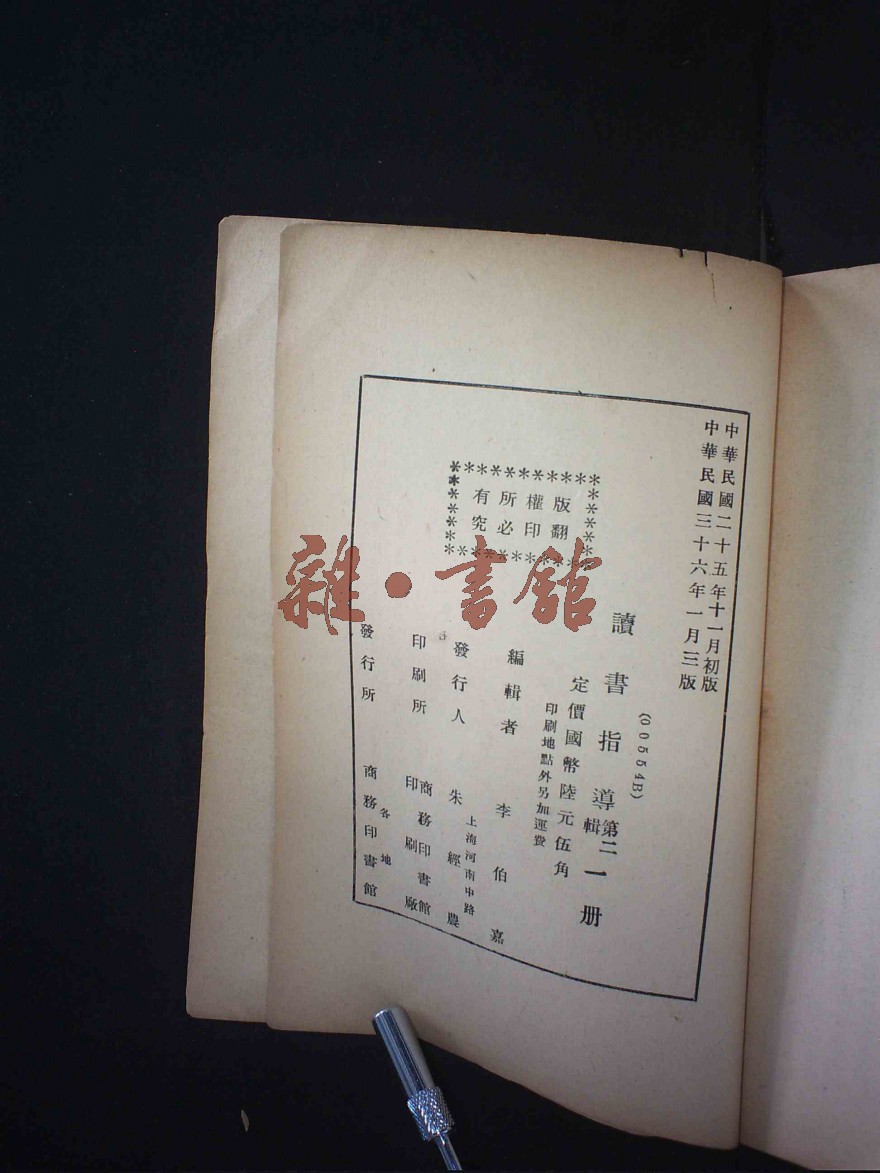 中華民國二十五年十一月初版
中華民國三十六年一月三版
(00554B)
讀書指導第二輯一册
定價國幣陸元伍角
印刷地點外另加運費
版權所有
翻印必究
編輯者 李伯嘉
上海河南中路
發行人 朱經農
印刷所 商務印書館印刷廠
各地
發行所 商務印書館
雜·書館